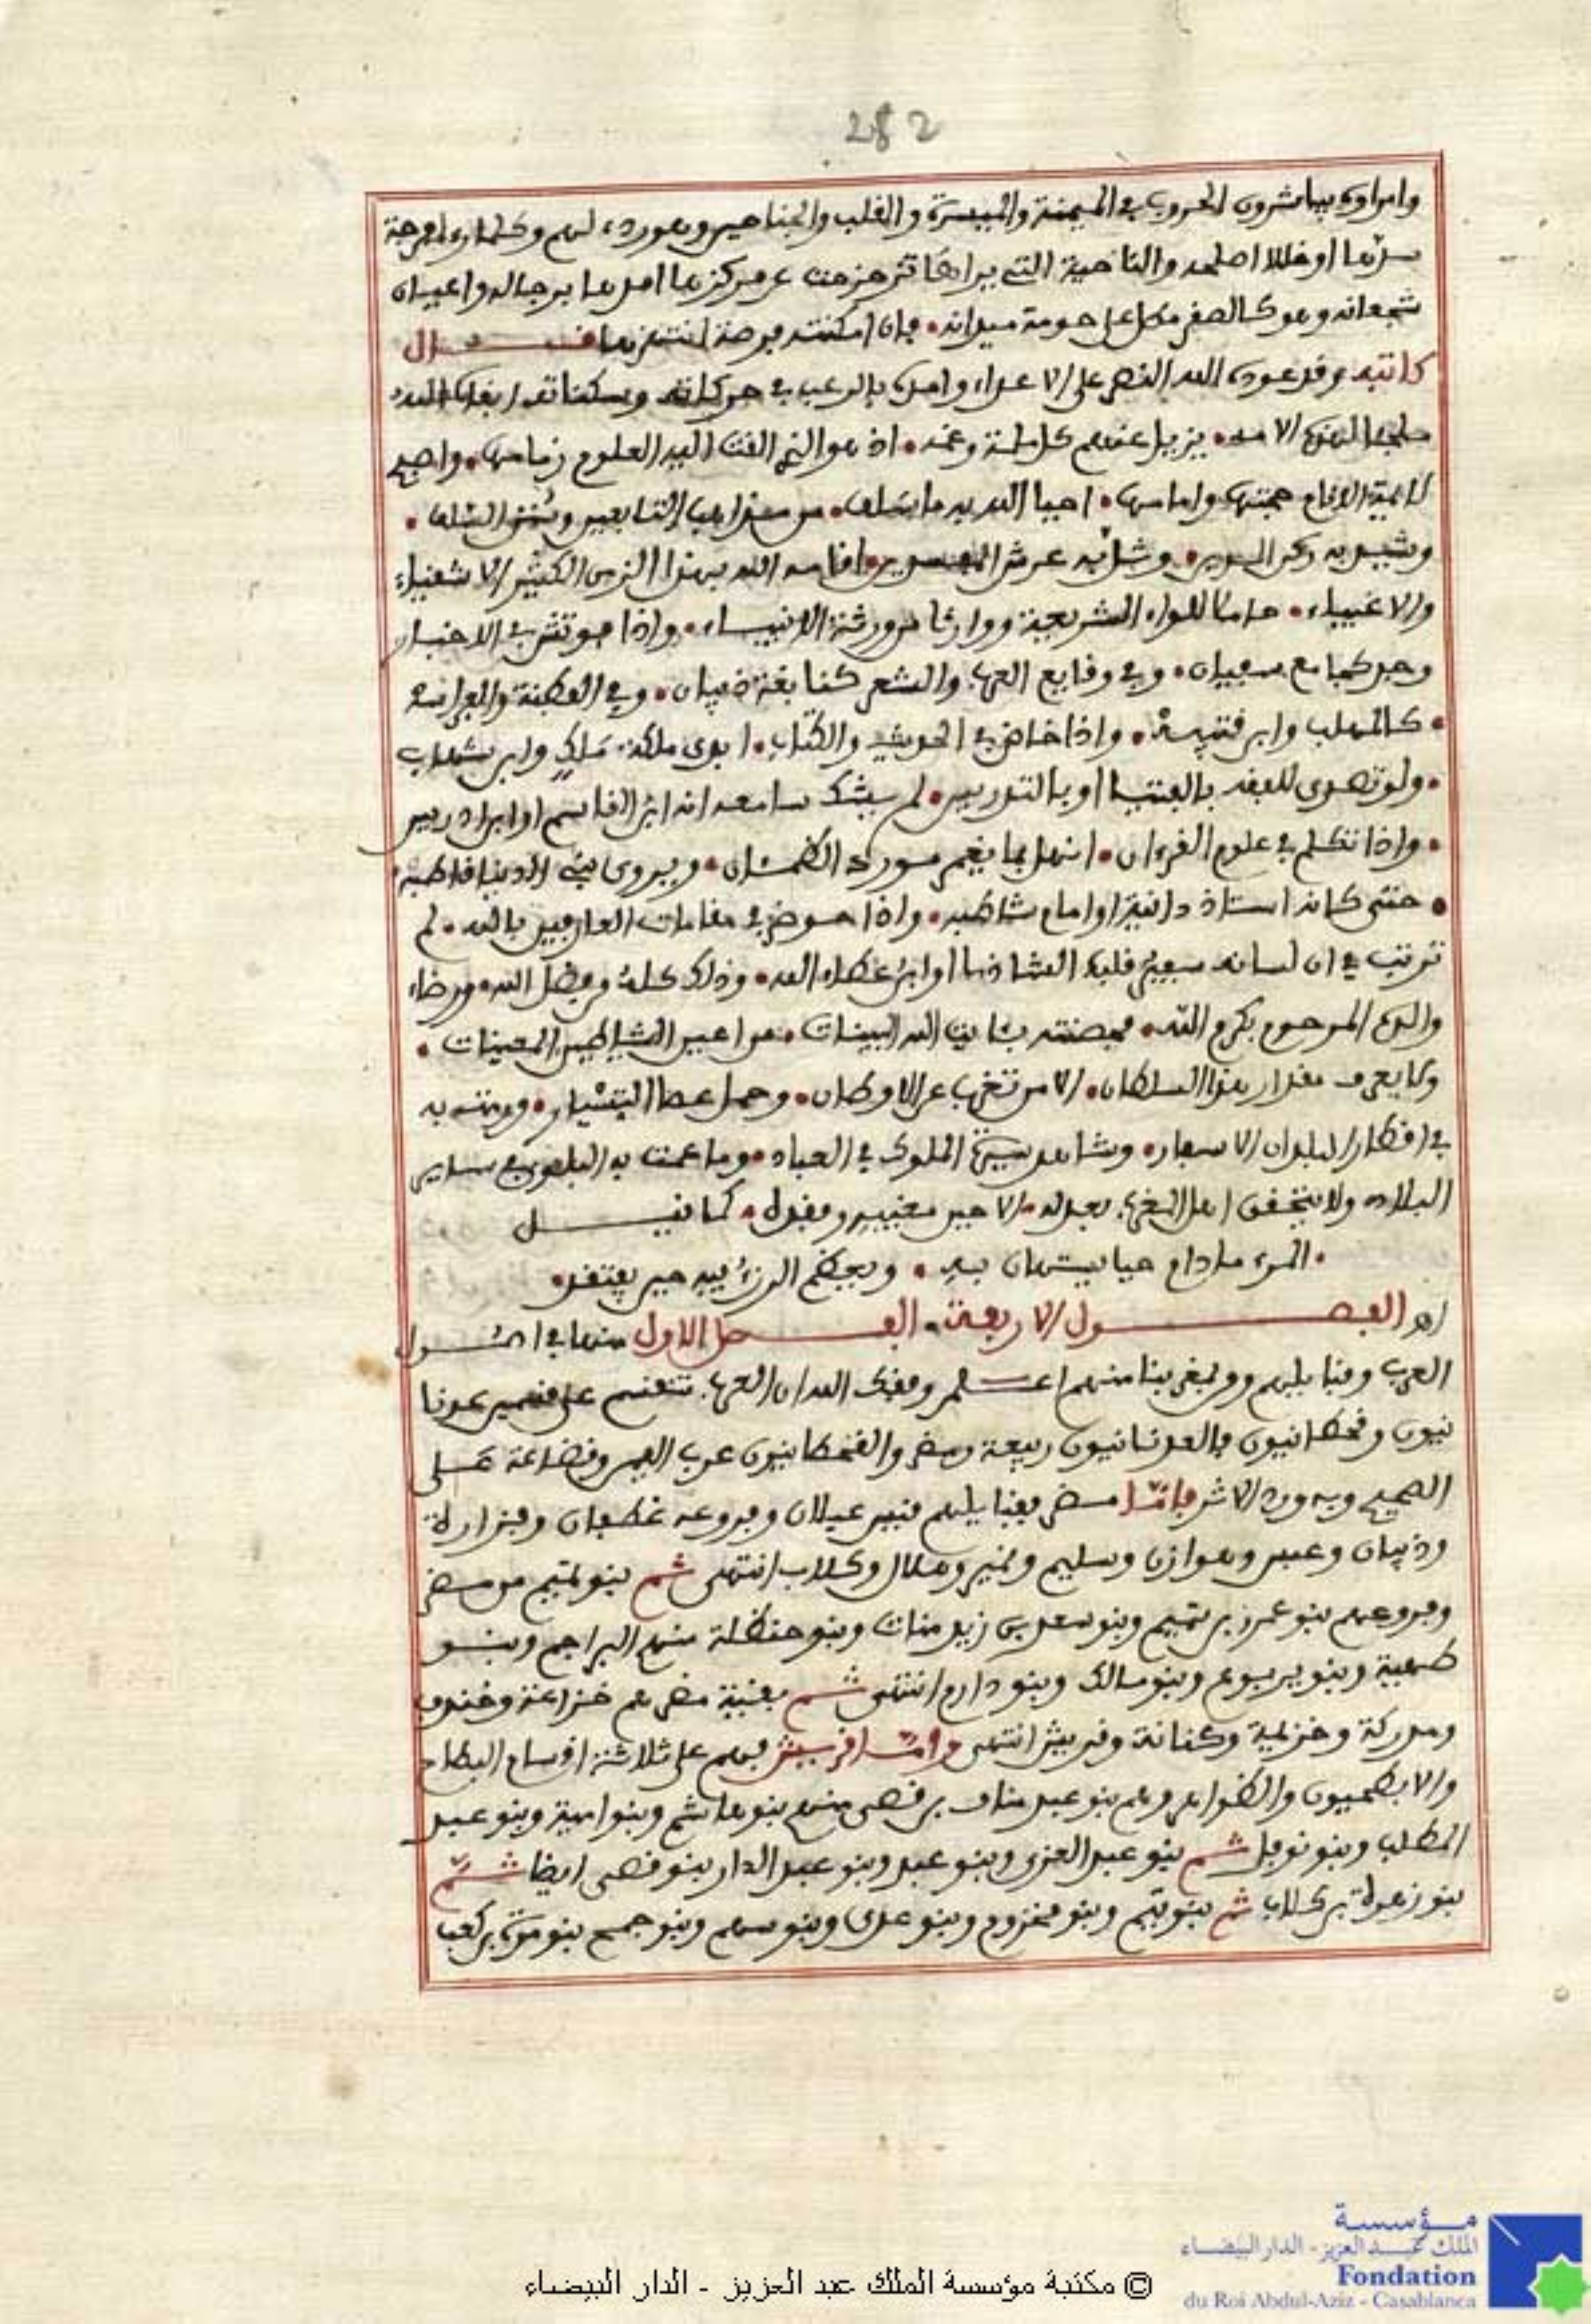 282
وامراوه يباشرون الحروب في الميمنة والميسرة والقلب والجناحين وهو ردء لهم وكلما رءا فرجة
سدها او خللا اصلحه والناحية التي يراها تزحزحت عن مركزها امدها برجاله واعيان
شجعانه وهو كالصقر مطل على حومة ميدانه فان امكنته فرصة انتهزها قال
كاتبه وقد عوده الله النصر على الاعداء وامده بالرعب في حركاته وسكناته ابقاه الله
ملجئا لهذه الامه يزيل عنهم كل ملمة وغمه اذ هو الذي القت اليه العلوم زمامها واصبح
لايمة حجتها وامامها احيا الله به ما سلف من مذاهب التابعين وسنن السلف
وشيد به ركن الدين وشد به عرش اقامه الله بهذا الزمن الكثير الاشقياء
والاغبياء حاملا للواء الشريعة ووارثا من ورثة الانبياء واذا في الاخبار
وجد كما مع سفيان وفي وقايع العرب والشعر كنابغة ذبيان وفي الفطنة والفراسة
كالمهلب وابن قتيبة واذا خاض في الحديث والكتاب ابدى ملكة مالك وابن شهاب
ولو تصدى للفقه بالفتيا او بالتدريس لم يشك سامعه انه ابن القاسم او ابن ادريس
واذا تكلم في علوم القرءان انهل بما يغمر مورد الظمئان ويروى بني الدنيا قاطبه
حتى كانه استاذ دانية او امام شاطبه واذا خوض في مقامات العارفين بالله لم
ترتب في ان لسانه سفير قلبه الشاذلي او ابن عطاء الله وذلك كله من فضل الله ورضاء
والده المرحوم بكرم الله فحصنته بئايت الله البينات من اعين الشياطين المعينات
ولا يعرف مقدار هذا السلطان الا من تغرب عن الاوطان وحمل عصا التسيار ورمته به
في اقطار البلدان الاسفار وشاهد سيرة الملوك في العباد وما عمت به البلوى في ساير
البلاد ولا يتحقق اهل المغرب بعدله الا حين مغيبه وفقده كما قيل
المرء ما دام حيا يستهان به ويعظم الرزء فيه حين يفتقد
اهـ الفصول الاربعة الفصل الاول منها في اصول
العرب وقبايلهم ومن بمغربنا منهم اعلم وفقك الله ان العرب تنقسم على قسمين عدنا
نيون وقحطانيون فالعدنانيون ربيعة ومضر والقحطانيون عرب اليمن وقضاعة على
الصحيح وبه ورد الاثر فاما مضر فقبايلهم قيس عيلان وفروعه غطفان وفزارة
وذبيان وعبس وهوازن وسليم ونمير وهلال وكلاب انتهى ثم بنو تميم من مضر
وفروعهم بنو عمرو بن تميم وبنو سعد بن زيد منات وبنو حنظلة منهم البراجم وبنو
طهية وبنو يربوع وبنو مالك وبنو دارم انتهى ثم بقية مضر هم خزاعة وخندف
ومدركة وخزيمة وكنانة وقريش انتهى واما قريش فهم على ثلاثة اقسام البطاح
والابطحيون والظواهر وهم بنو عبد مناف بن قصى منهم بنو هاشم وبنو امية وبنو عبد
المطلب وبنو نوفل ثم بنو عبد العزى وبنو عبد وبنو عبد الدار بنو قصى ايضا ثم
بنو زهرة بن كلاب ثم بنو تيم وبنو مخزوم وبنو عدى وبنو سهم وبنو جمح بنو مرة بن كعب
مؤسسة
الملك عبد العزيز - الدار البيضاء
Fondation
du Roi Abdul-Aziz - Casablanca
© مكتبة مؤسسة الملك عبد العزيز - الدار البيضاء